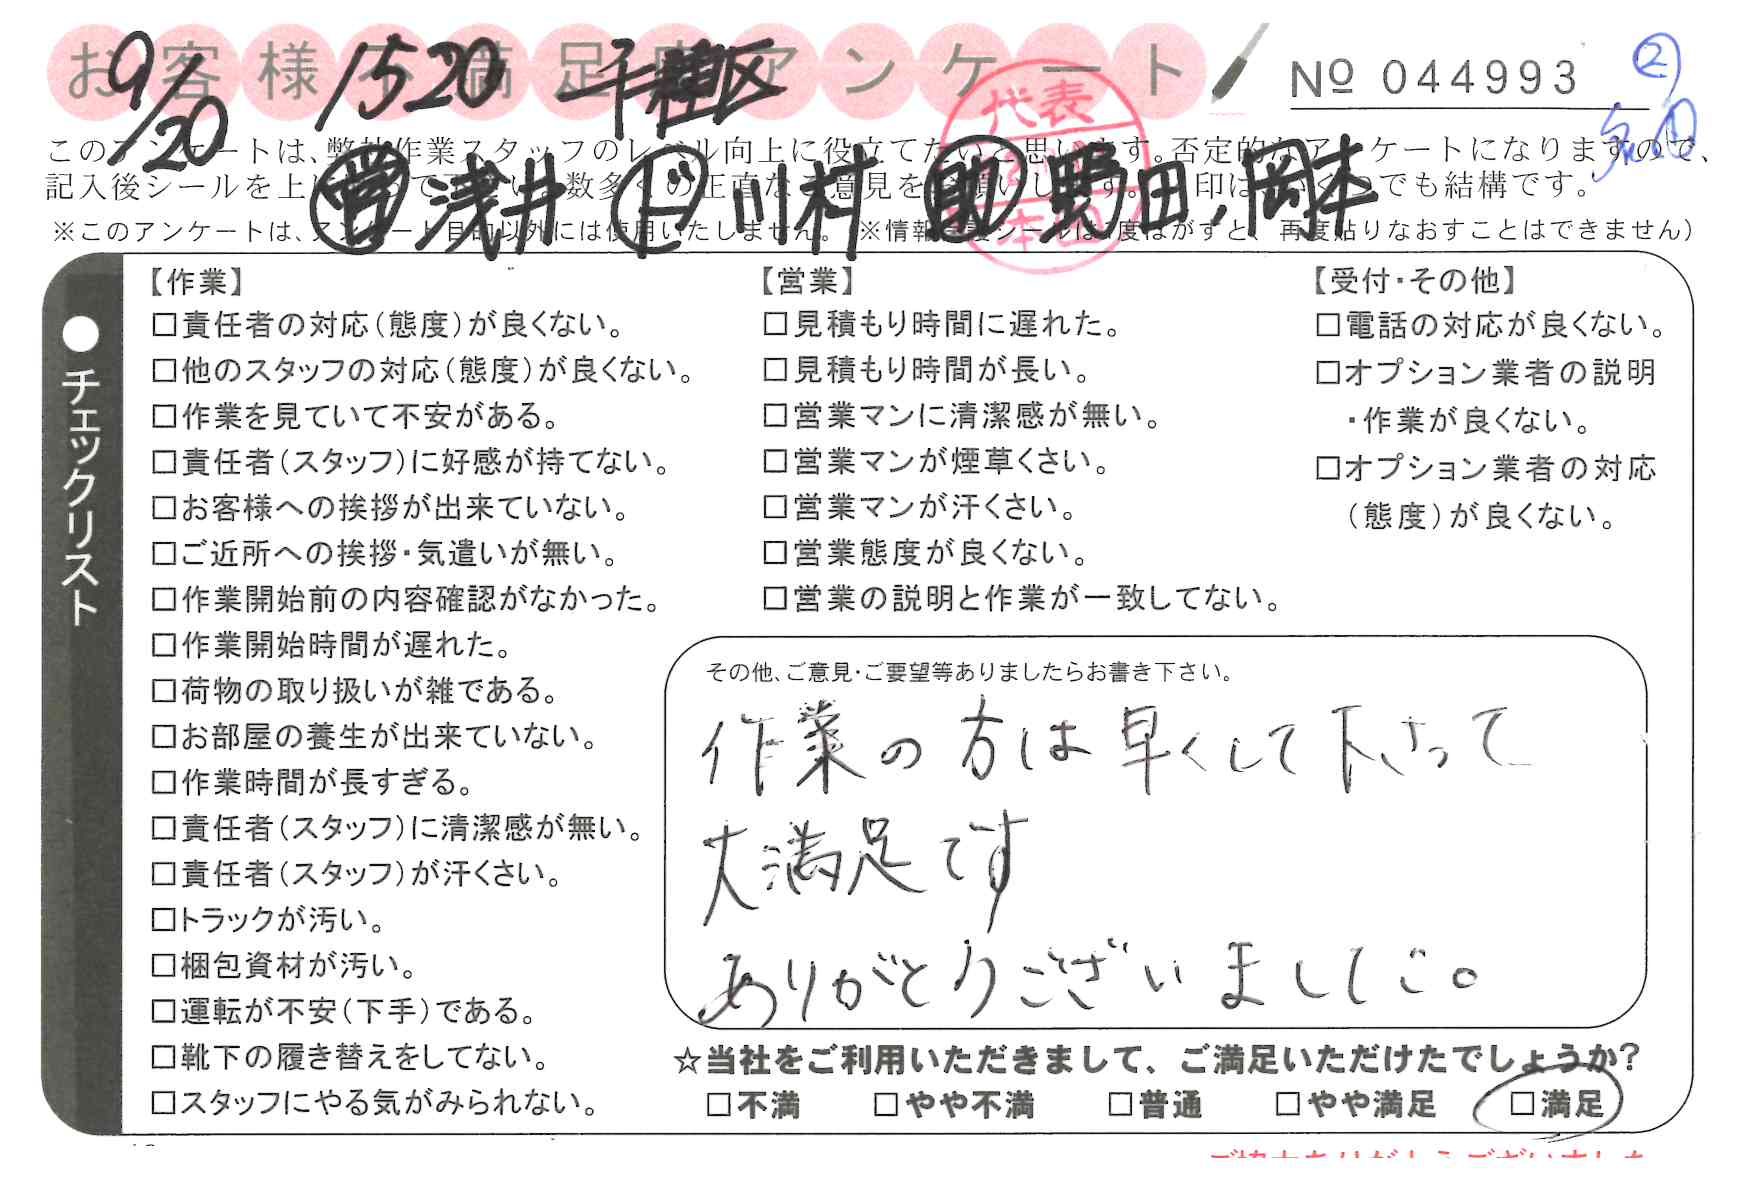 お客様不満足度アンケート
9/20 1520 千種区
№ 044993
②
このアンケートは、弊社作業スタッフのレベル向上に役立てたいと思います。否定的なアンケートになりますので、
記入後シールを上 数多くの正直なご意見を 印は でも結構です。
営 浅井 ド 川村 助 野田、岡本
代表
※このアンケートは、アンケート目的以外には使用いたしません。 ※情報 シールは1度はがすと、再度貼りなおすことはできません)
●チェックリスト
【作業】
□責任者の対応(態度)が良くない。
□他のスタッフの対応(態度)が良くない。
□作業を見ていて不安がある。
□責任者(スタッフ)に好感が持てない。
□お客様への挨拶が出来ていない。
□ご近所への挨拶・気遣いが無い。
□作業開始前の内容確認がなかった。
□作業開始時間が遅れた。
□荷物の取り扱いが雑である。
□お部屋の養生が出来ていない。
□作業時間が長すぎる。
□責任者(スタッフ)に清潔感が無い。
□責任者(スタッフ)が汗くさい。
□トラックが汚い。
□梱包資材が汚い。
□運転が不安(下手)である。
□靴下の履き替えをしてない。
□スタッフにやる気がみられない。
【営業】
□見積もり時間に遅れた。
□見積もり時間が長い。
□営業マンに清潔感が無い。
□営業マンが煙草くさい。
□営業マンが汗くさい。
□営業態度が良くない。
□営業の説明と作業が一致してない。
【受付・その他】
□電話の対応が良くない。
□オプション業者の説明
・作業が良くない。
□オプション業者の対応
(態度)が良くない。
その他、ご意見・ご要望等ありましたらお書き下さい。
作業の方は早くして下さって
大満足です
ありがとうございました。
☆当社をご利用いただきまして、ご満足いただけたでしょうか?
□不満 □やや不満 □普通 □やや満足 □満足